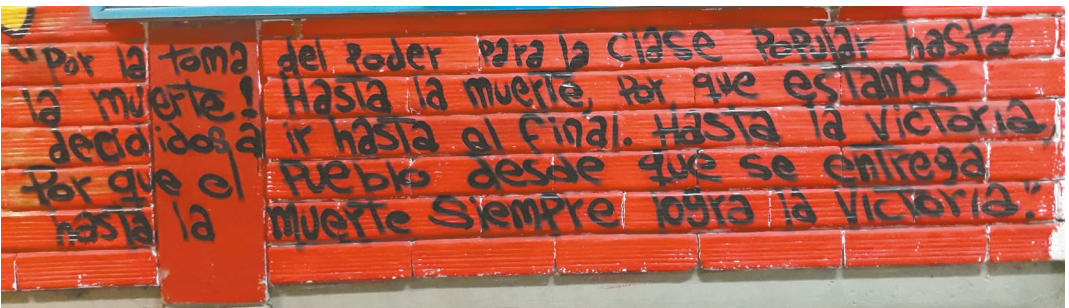 "Por la toma del Poder para la Clase Popular hasta
la muerte! Hasta la muerte, Por que estamos
decididos a ir hasta el final. Hasta la Victoria,
Por que el Pueblo desde que se entrega
hasta la muerte Siempre logra la Victoria."